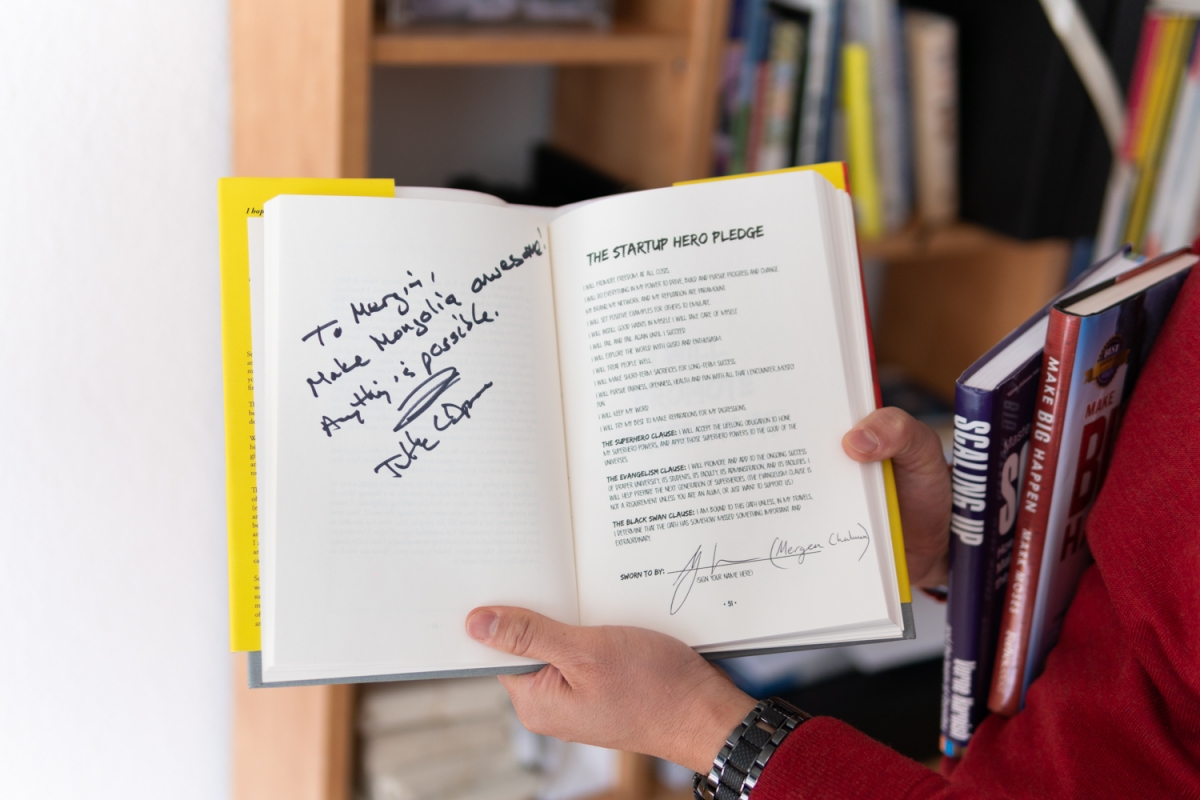 To Mergin,
Make Mongolia awesome!
Anything is possible.
THE STARTUP HERO PLEDGE
I WILL PROMOTE FREEDOM AT ALL COSTS.
I WILL DO EVERYTHING IN MY POWER TO DRIVE, BUILD AND PURSUE PROGRESS AND CHANGE.
MY BRAND, MY NETWORK, AND MY REPUTATION ARE PARAMOUNT.
I WILL SET POSITIVE EXAMPLES FOR OTHERS TO EMULATE.
I WILL INSTILL GOOD HABITS IN MYSELF. I WILL TAKE CARE OF MYSELF.
I WILL FAIL AND FAIL AGAIN UNTIL I SUCCEED.
I WILL EXPLORE THE WORLD WITH GUSTO AND ENTHUSIASM.
I WILL TREAT PEOPLE WELL.
I WILL MAKE SHORT-TERM SACRIFICES FOR LONG-TERM SUCCESS.
I WILL PURSUE FAIRNESS, OPENNESS, HEALTH AND FUN WITH ALL THAT I ENCOUNTER. MOSTLY
FUN.
I WILL KEEP MY WORD.
I WILL TRY MY BEST TO MAKE REPARATIONS FOR MY DIGRESSIONS.
THE SUPERHERO CLAUSE: I WILL ACCEPT THE LIFELONG OBLIGATION TO HONE
MY SUPERHERO POWERS, AND APPLY THOSE SUPERHERO POWERS TO THE GOOD OF THE
UNIVERSE.
THE EVANGELISM CLAUSE: I WILL PROMOTE AND ADD TO THE ONGOING SUCCESS
OF DRAPER UNIVERSITY, ITS STUDENTS, ITS FACULTY, ITS ADMINISTRATION, AND ITS FACILITIES. I
WILL HELP PREPARE THE NEXT GENERATION OF SUPERHEROES. (THE EVANGELISM CLAUSE IS
NOT A REQUIREMENT UNLESS YOU ARE AN ALUM, OR JUST WANT TO SUPPORT US.)
THE BLACK SWAN CLAUSE: I AM BOUND TO THIS OATH UNLESS, IN MY TRAVELS,
I DETERMINE THAT THE OATH HAS SOMEHOW MISSED SOMETHING IMPORTANT AND
EXTRAORDINARY.
SWORN TO BY:
(Mergen
(SIGN YOUR NAME HERE)
• 51 •
SCALING UP
Verne Harnish
MAKE BIG HAPPEN
BEST
MAKE